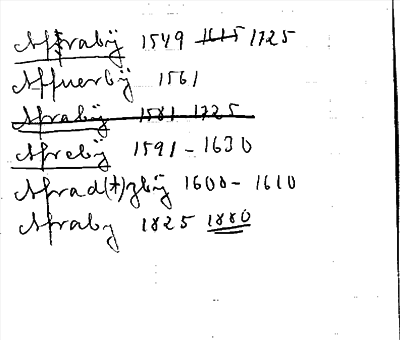 Affrabÿ 1549 1615 1725
Affuerbÿ 1561
Afrabÿ 1581-1725
Afrebÿ 1591-1630
Afrad(t)zbÿ 1600-1610
Afraby 1825 1880